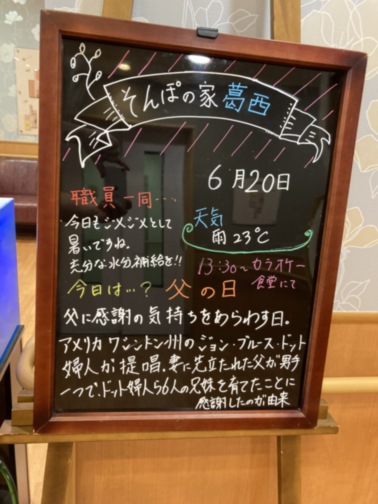 そんぽの家 葛西
6月20日
天気
雨 23℃
職員一同・・・
今日もジメジメとして
暑いですね。
充分な水分補給を!!
13:30〜カラオケー
食堂にて
今日は…? 父の日
父に感謝の気持ちをあらわす日。
アメリカ ワシントン州のジョン・ブルース・ドット
婦人が提唱。妻に先立たれた父が男手
一つで、ドット婦人ら6人の兄妹を育てたことに
感謝したのが由来